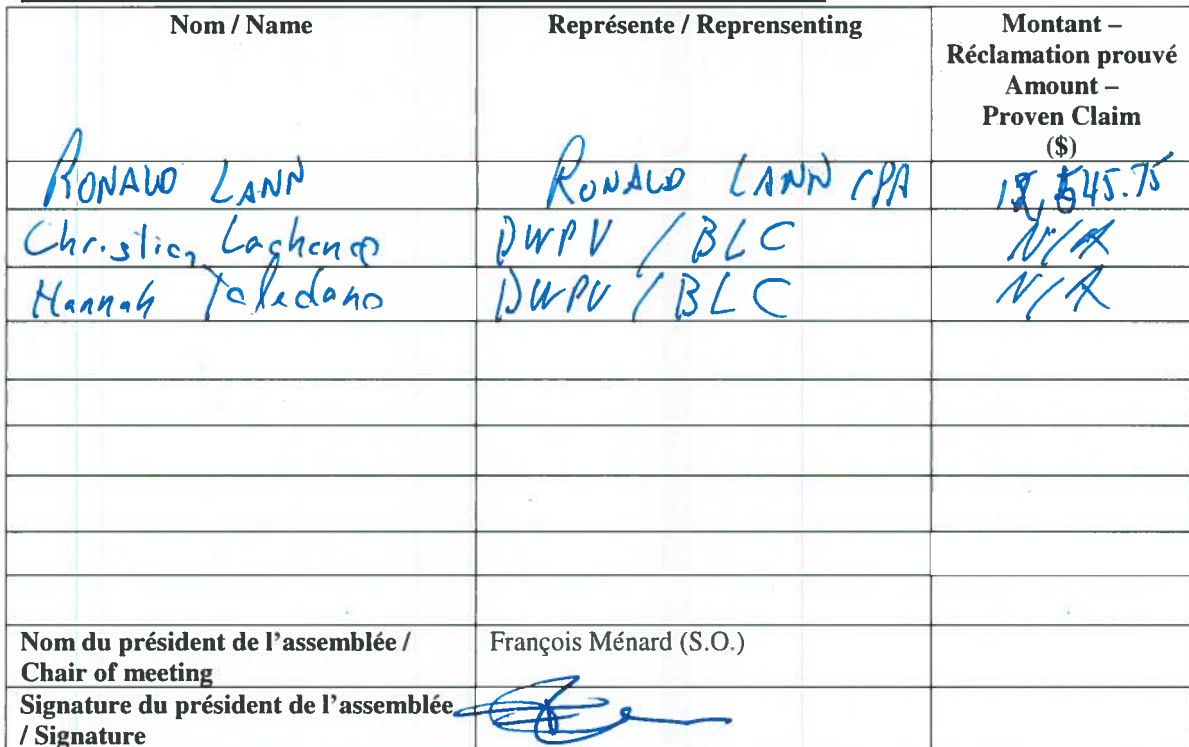 Nom / Name Représente / Reprensenting Montant –
Réclamation prouvé
Amount –
Proven Claim
($)
RONALD LANN RONALD LANN CPA 545.75
Christian DWPV / BLC N/A
Hannah Toledano DWPV / BLC N/A
Nom du président de l'assemblée / François Ménard (S.O.)
Chair of meeting
Signature du président de l'assemblée
/ Signature